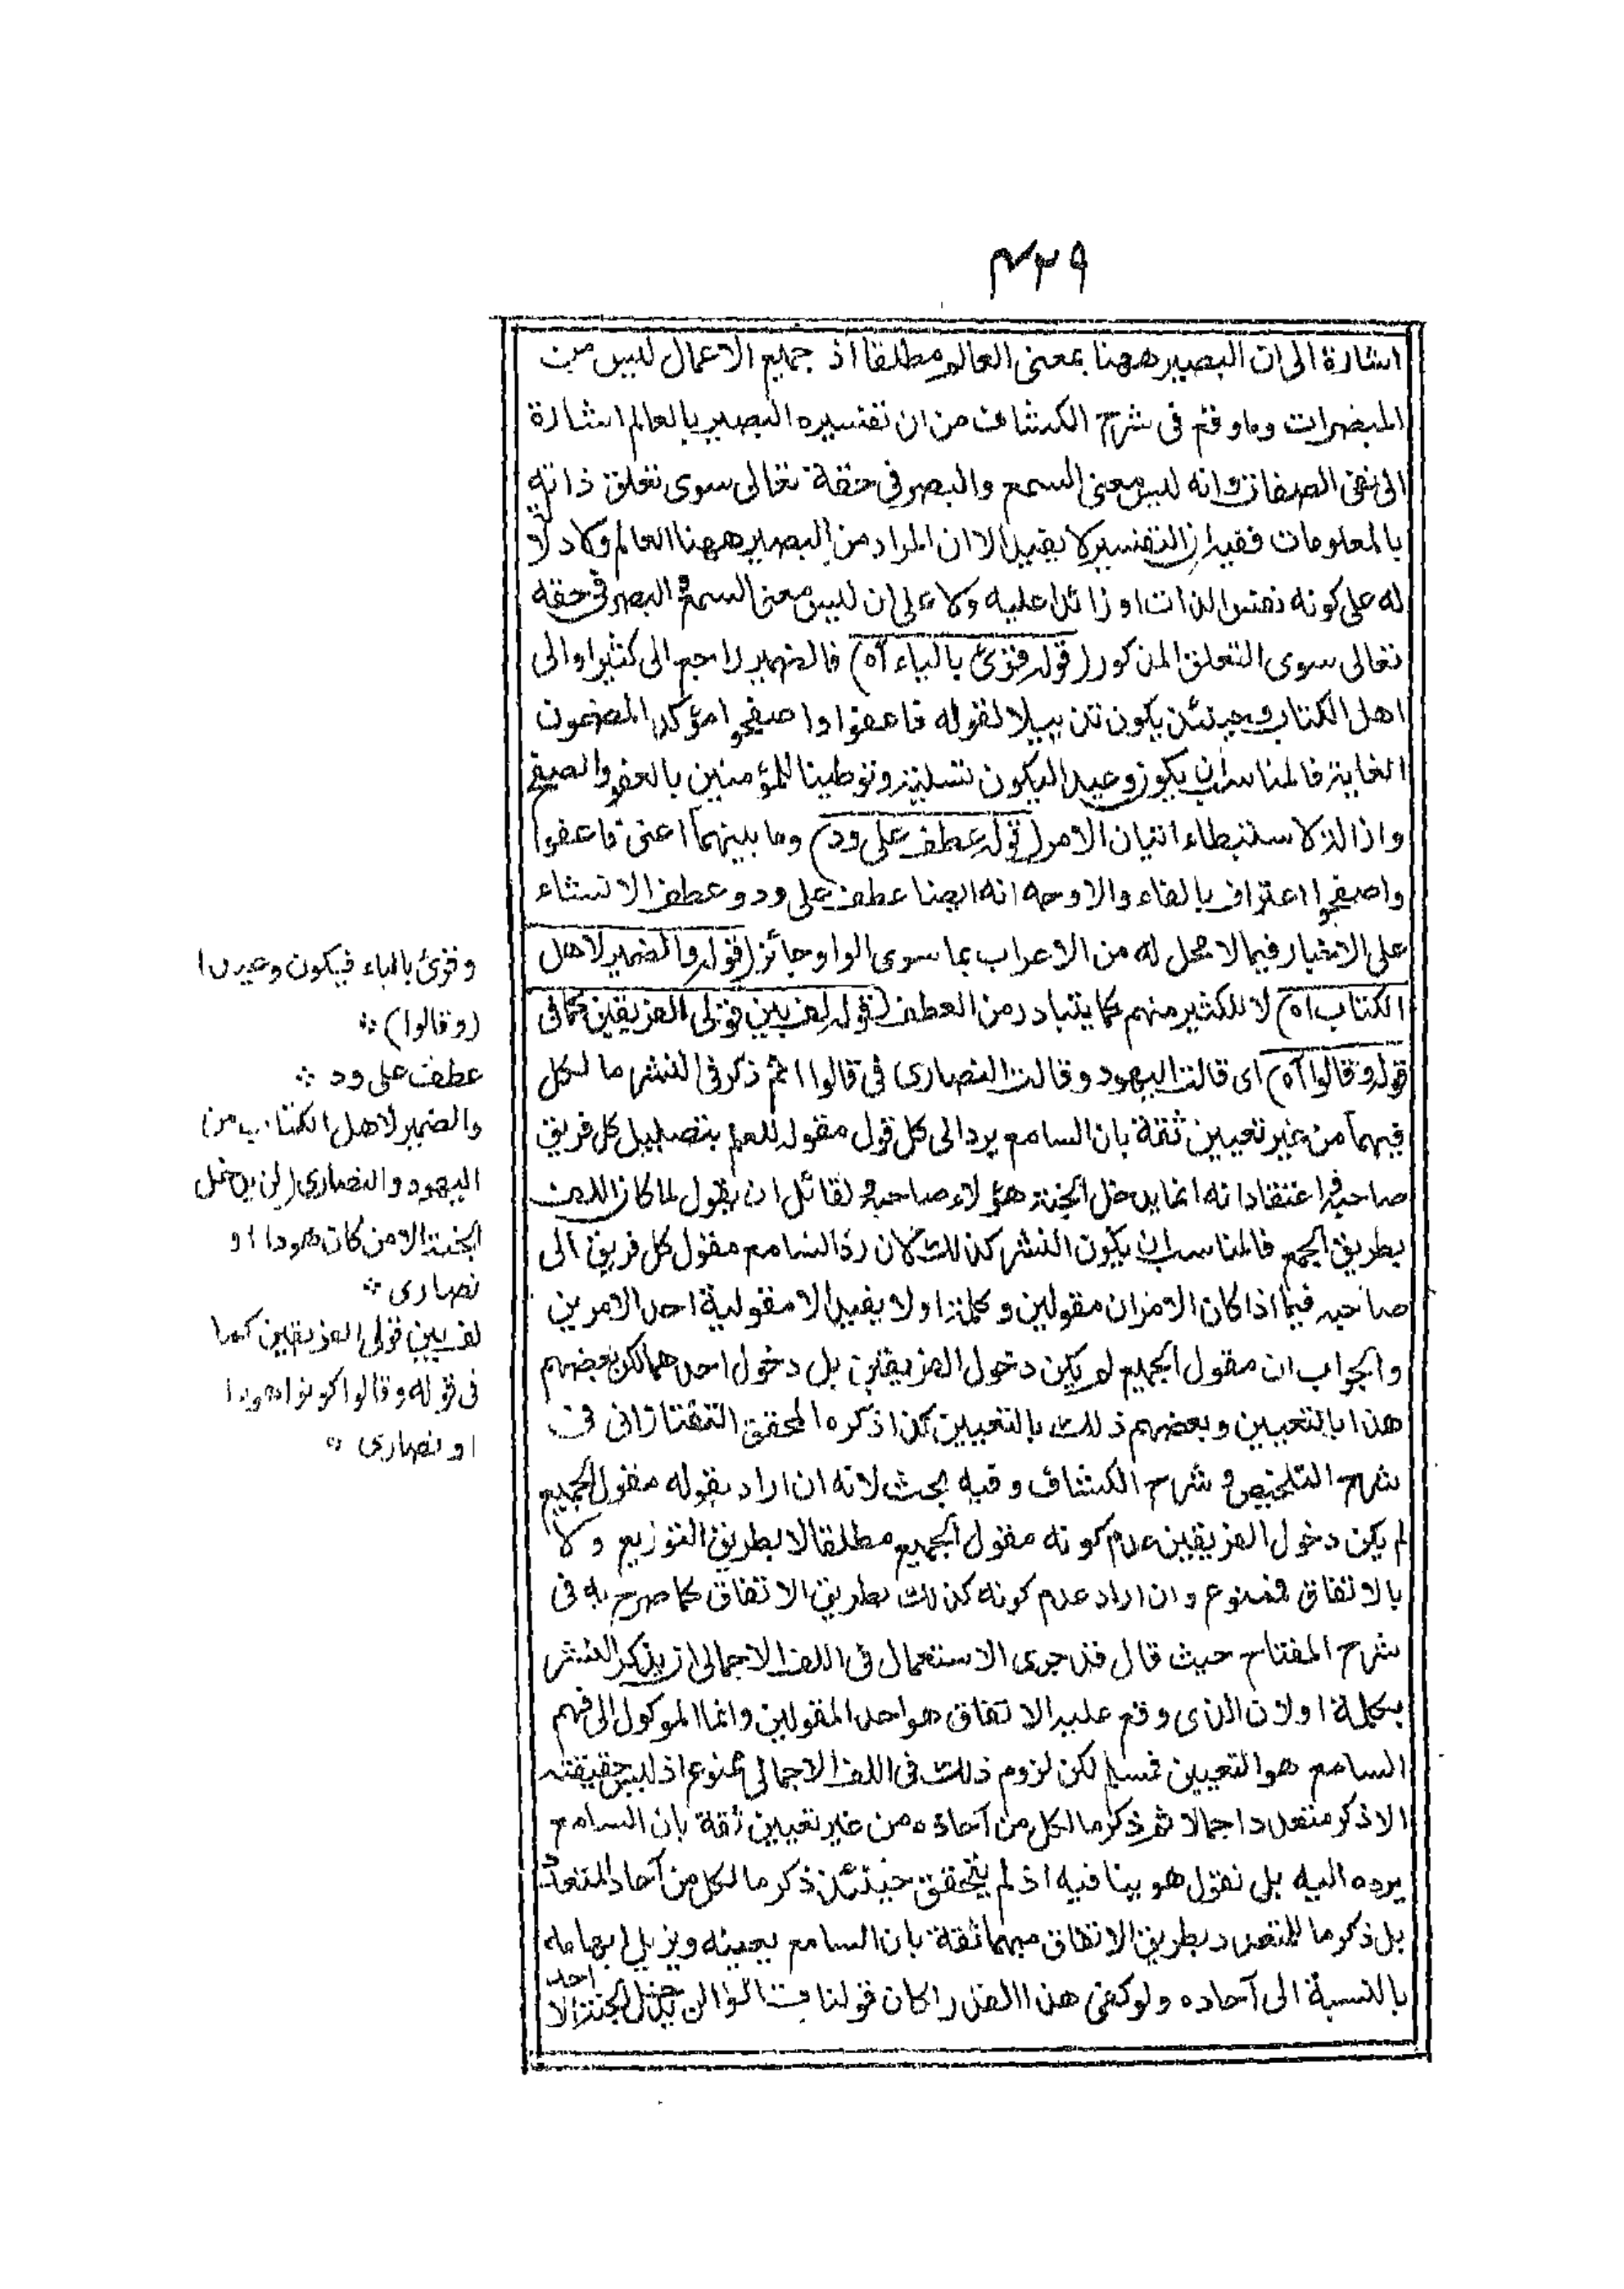 ٤٣٩
اشارة الى ان البصير ههنا بمعنى العالم مطلقا اذ جميع الاعمال ليس من
المبصرات وما وقع فى شرح الكشاف من ان تفسيره البصير بالعالم اشارة
الى نفى الصفات وانه ليس معنى السمع والبصر فى حقه تعالى سوى تعلق ذاته
بالمعلومات ففيه ان التفسير لا يفيد الا ان المراد من البصير ههنا العالم ولا دلالة
له على كونه نفس الذات او زائدا عليه ولا على ان ليس معنى السمع والبصر فى حقه
تعالى سوى التعلق المذكور (قوله وقرئ بالياء اه) فالضمير راجع الى كثير او الى
اهل الكتاب وحينئذ يكون تذييلا لقوله فاعفوا واصفحوا مؤكدا لمضمون
الغاية فالمناسب ان يكون وعيدا ليكون تسلية وتوطينا للمؤمنين بالعفو والصفح
وازالة لاستبطاء اتيان الامر (قوله عطف على ود) وما بينهما اعنى فاعفوا
واصفحوا اعتراف بالفاء والاوجه انه ايضا عطف على ود وعطف الانشاء
على الاخبار فيما لا محل له من الاعراب بما سوى الواو جائز (قوله والضمير لاهل
الكتاب اه) لا للكثير منهم كما يتبادر من العطف (قوله لف بين قولى الفريقين كما فى
قوله وقالوا اه) اى قالت اليهود وقالت النصارى فى قالوا ثم ذكر فى النشر ما لكل
فيهما من غير تعيين ثقة بان السامع يرد الى كل قول مقوله للعلم بتضليل كل فريق
صاحبه واعتقاداته انما يدخل الجنة هؤلاء صاحبه ولقائل ان يقول لما كان اللف
بطريق الجمع فالمناسب ان يكون النشر كذلك لان رد السامع مقول كل فريق الى
صاحبه فيما اذا كان الامران مقولين وكلمة او لا يفيد الا مقولية احد الامرين
والجواب ان مقول الجميع لم يكن دخول الفريقين بل دخول احدهما لكن بعضهم
هذا بالتعيين وبعضهم ذلك بالتعيين كذا ذكره المحقق التفتازانى فى
شرح التلخيص و شرح الكشاف وفيه بحث لانه ان اراد بقوله مقول الجميع
لم يكن دخول الفريقين عدم كونه مقول الجميع مطلقا لا بطريق التوزيع ولا
بالاتفاق فممنوع وان اراد عدم كونه كذلك بطريق الاتفاق كما صرح به فى
شرح المفتاح حيث قال قد جرى الاستعمال فى اللف الاجمالى ان يذكر النشر
بكلمة او لان الذى وقع عليه الاتفاق هو احد المقولين وانما الموكول الى فهم
السامع هو التعيين فمسلم لكن لزوم ذلك فى اللف الاجمالى ممنوع اذ ليس حقيقته
الا ذكر متعدد اجمالا ثم ذكر ما لكل من آحاده من غير تعيين ثقة بان السامع
يرده اليه بل نقول هو ينافيه اذ لم يتحقق حينئذ ذكر ما لكل من آحاد المتعدد
بل ذكر ما للمتعدد بطريق الاتفاق مبهما ثقة بان السامع يعينه ويزيل ابهامه
بالنسبة الى آحاده ولو كفى هذا القدر لكان قولنا قالوا لن يدخل الجنة احد الا
وقرئ بالياء فيكون وعيدا
(وقالوا)
عطف على ود
والضمير لاهل الكتاب من
اليهود والنصارى (لن يدخل
الجنة الا من كان هودا او
نصارى
لف بين قولى الفريقين كما
فى قوله وقالوا كونوا هودا
او نصارى